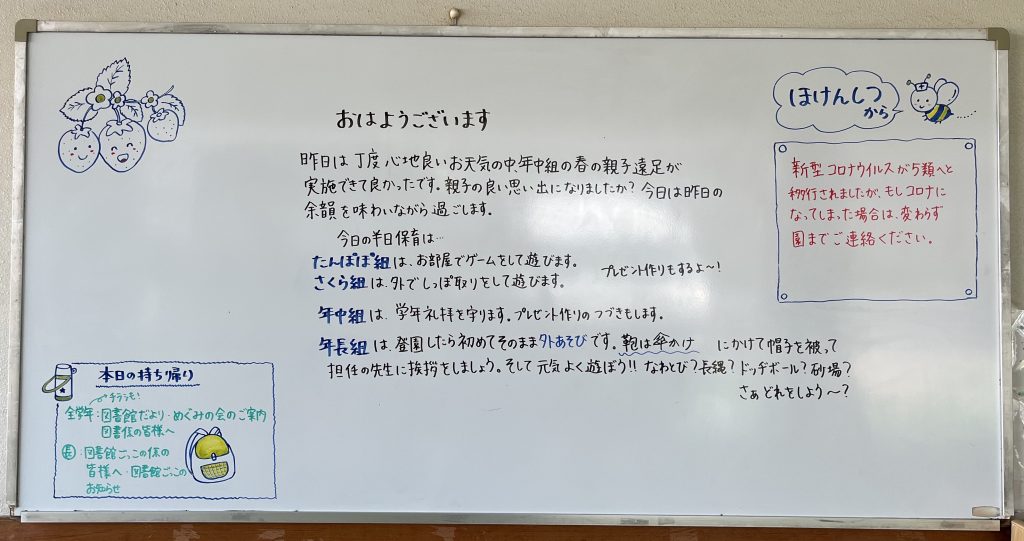 おはようございます
昨日は丁度心地良いお天気の中、年中組の春の親子遠足が
実施できて良かったです。親子の良い思い出になりましたか?今日は昨日の
余韻を味わいながら過ごします。
今日の半日保育は…
たんぽぽ組は、お部屋でゲームをして遊びます。
さくら組は、外でしっぽ取りをして遊びます。
プレゼント作りもするよ〜!
年中組は、学年礼拝を守ります。プレゼント作りのつづきもします。
年長組は、登園したら初めてそのまま外あそびです。鞄は傘かけ にかけて帽子を被って
担任の先生に挨拶をしましょう。そして元気よく遊ぼう!!なわとび?長縄?ドッヂボール?砂場?
さぁどれをしよう〜?
ほけんしつ
から
新型コロナウイルスが5類へと
移行されましたが、もしコロナに
なってしまった場合は、変わらず
園までご連絡ください。
本日の持ち帰り
チラうも!
全学年:図書館だより・めぐみの会のご案内
図書係の皆様へ
長:図書館ごっこの係の
皆様へ・図書館ごっこの
お知らせ